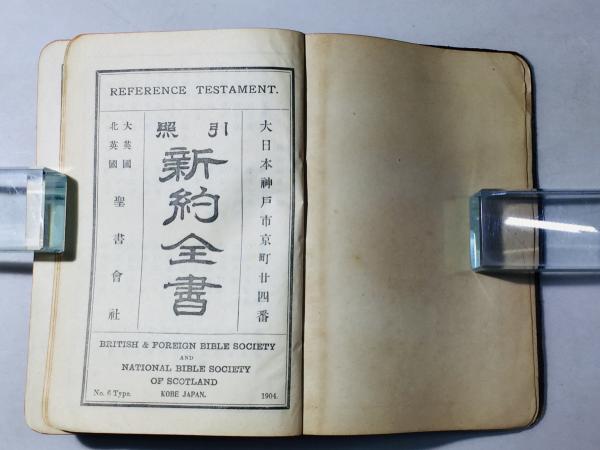 REFERENCE TESTAMENT.
大日本神戸市京町廿四番
引照
新約全書
大英國
北英國
聖書會社
BRITISH & FOREIGN BIBLE SOCIETY
AND
NATIONAL BIBLE SOCIETY
OF SCOTLAND
No. 6 Type. KOBE JAPAN. 1904.